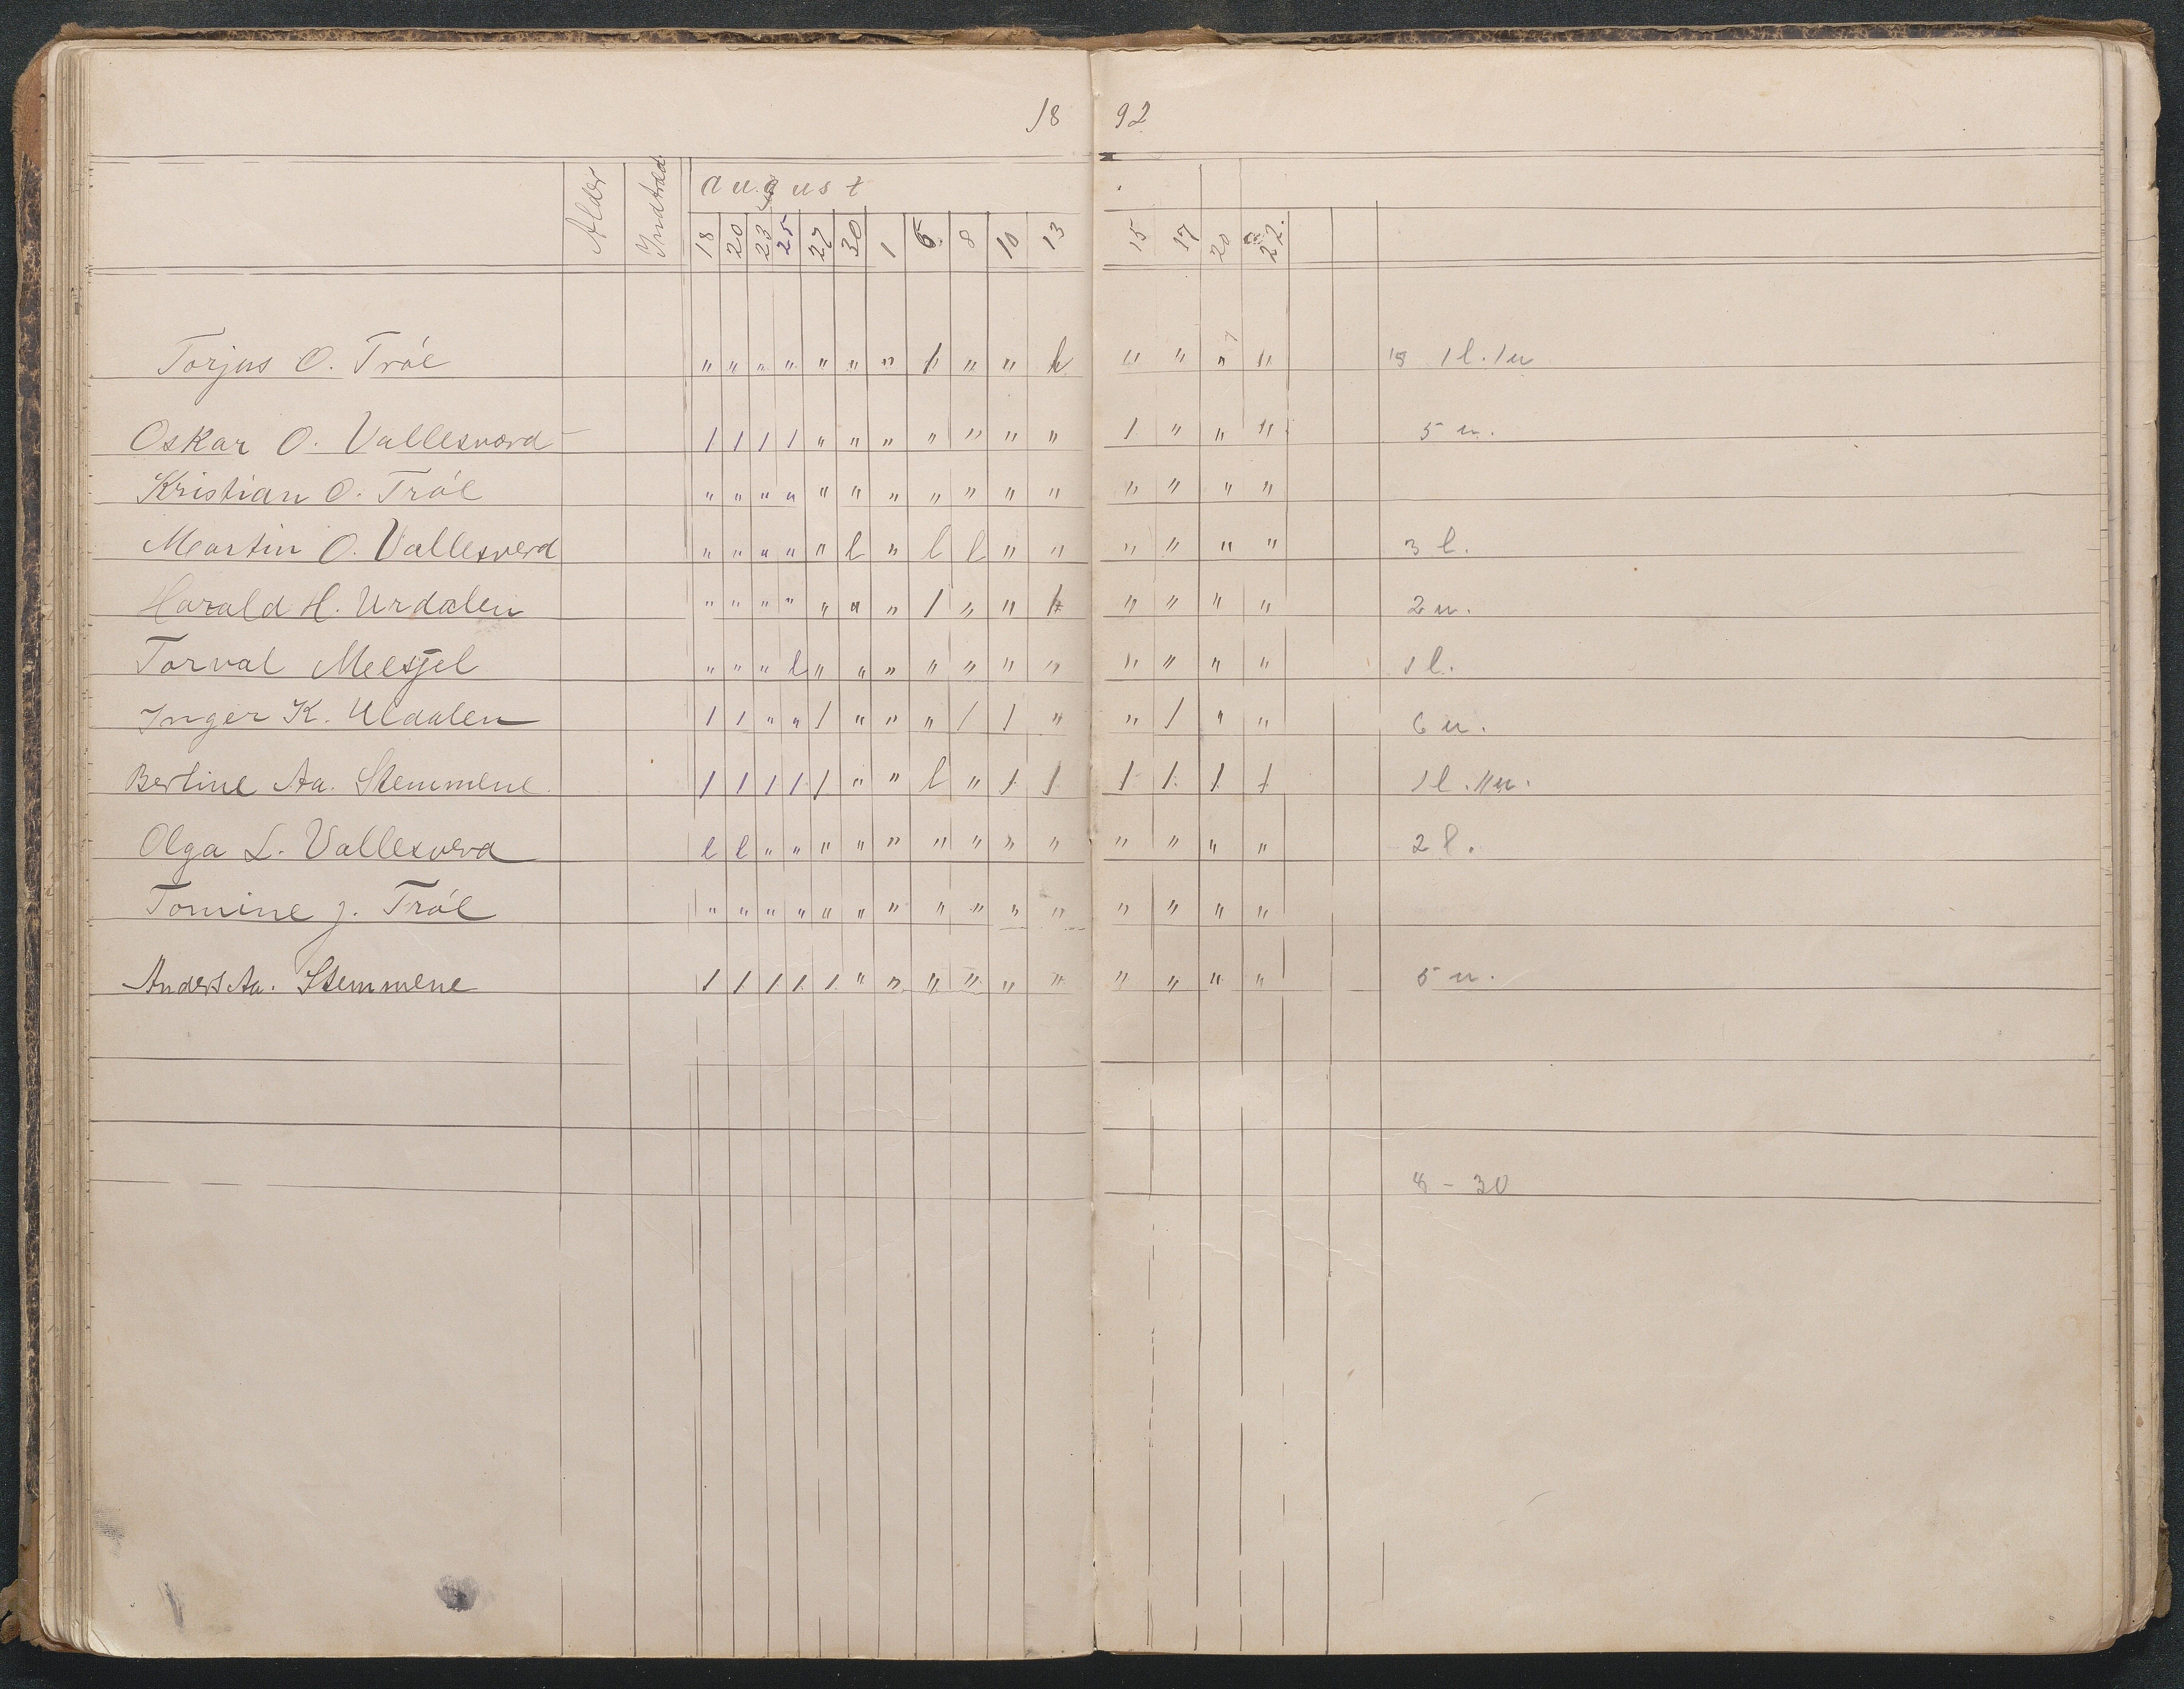 18 92
Alder Indtræd. august
18 20 23 25 27 30 1 6 8 10 13 15 17 20 22.
Torjus O. Trål " " " " " " " 1 " " h " " " " 1l. 1u
Oskar O. Vallesværd 1 1 1 1 " " " " " " " 1 " " " 5 u.
Kristian O. Trål " " " " " " " " " " " " " " "
Martin O. Vallesverd " " " " " l " l l " " " " " " 3 l.
Harald H. Urdalen " " " " " " " 1 " " 1 " " " " 2 u.
Torval Mesel " " " l " " " " " " " " " " " 1 l.
Inger K. Uldalen 1 1 " " 1 " " " 1 1 " " 1 " " 6 u.
Bertine Aa. Stemmene. 1 1 1 1 1 " " l " 1 1 1 1 1 1 1 l. 11 u.
Olga L. Vallesverd l l " " " " " " " " " " " " " 2 l.
Tomine J. Trål " " " " " " " " " " " " " " "
Anders Aa. Stemmene 1 1 1 1 1 " " " " " " " " " " 5 u.
8 - 30